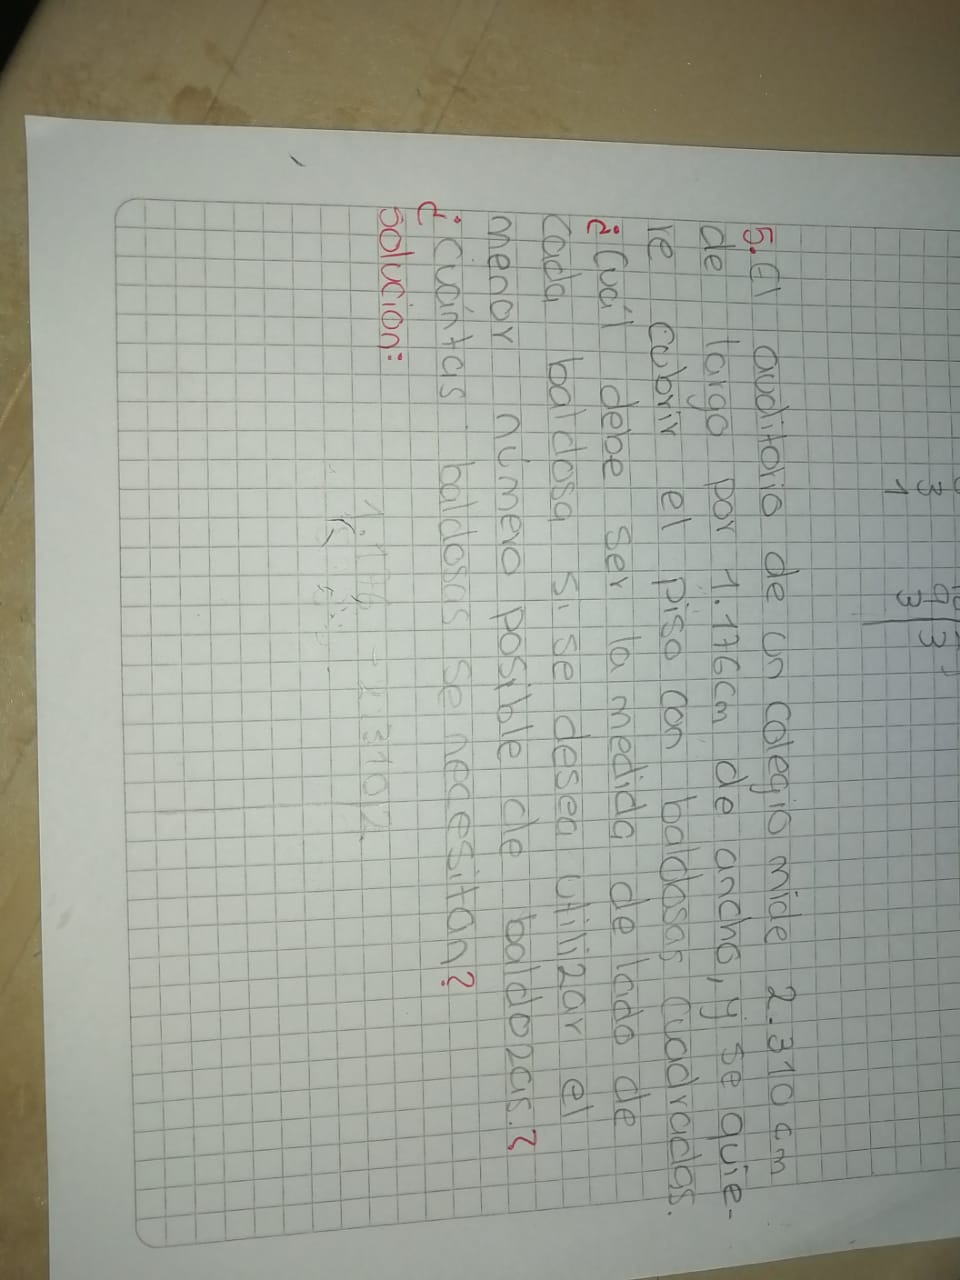 3 9 3
1 3
5. El auditorio de un colegio mide 2.310 cm
de largo por 1.176cm de ancho, y se quie-
re cubrir el piso con baldosas cuadradas.
¿Cuál debe ser la medida de lado de
cada baldosa si se desea utilizar el
menor número posible de baldozas.?
¿cuántas baldosas se necesitan?
Solución:
1.176 - 2.310